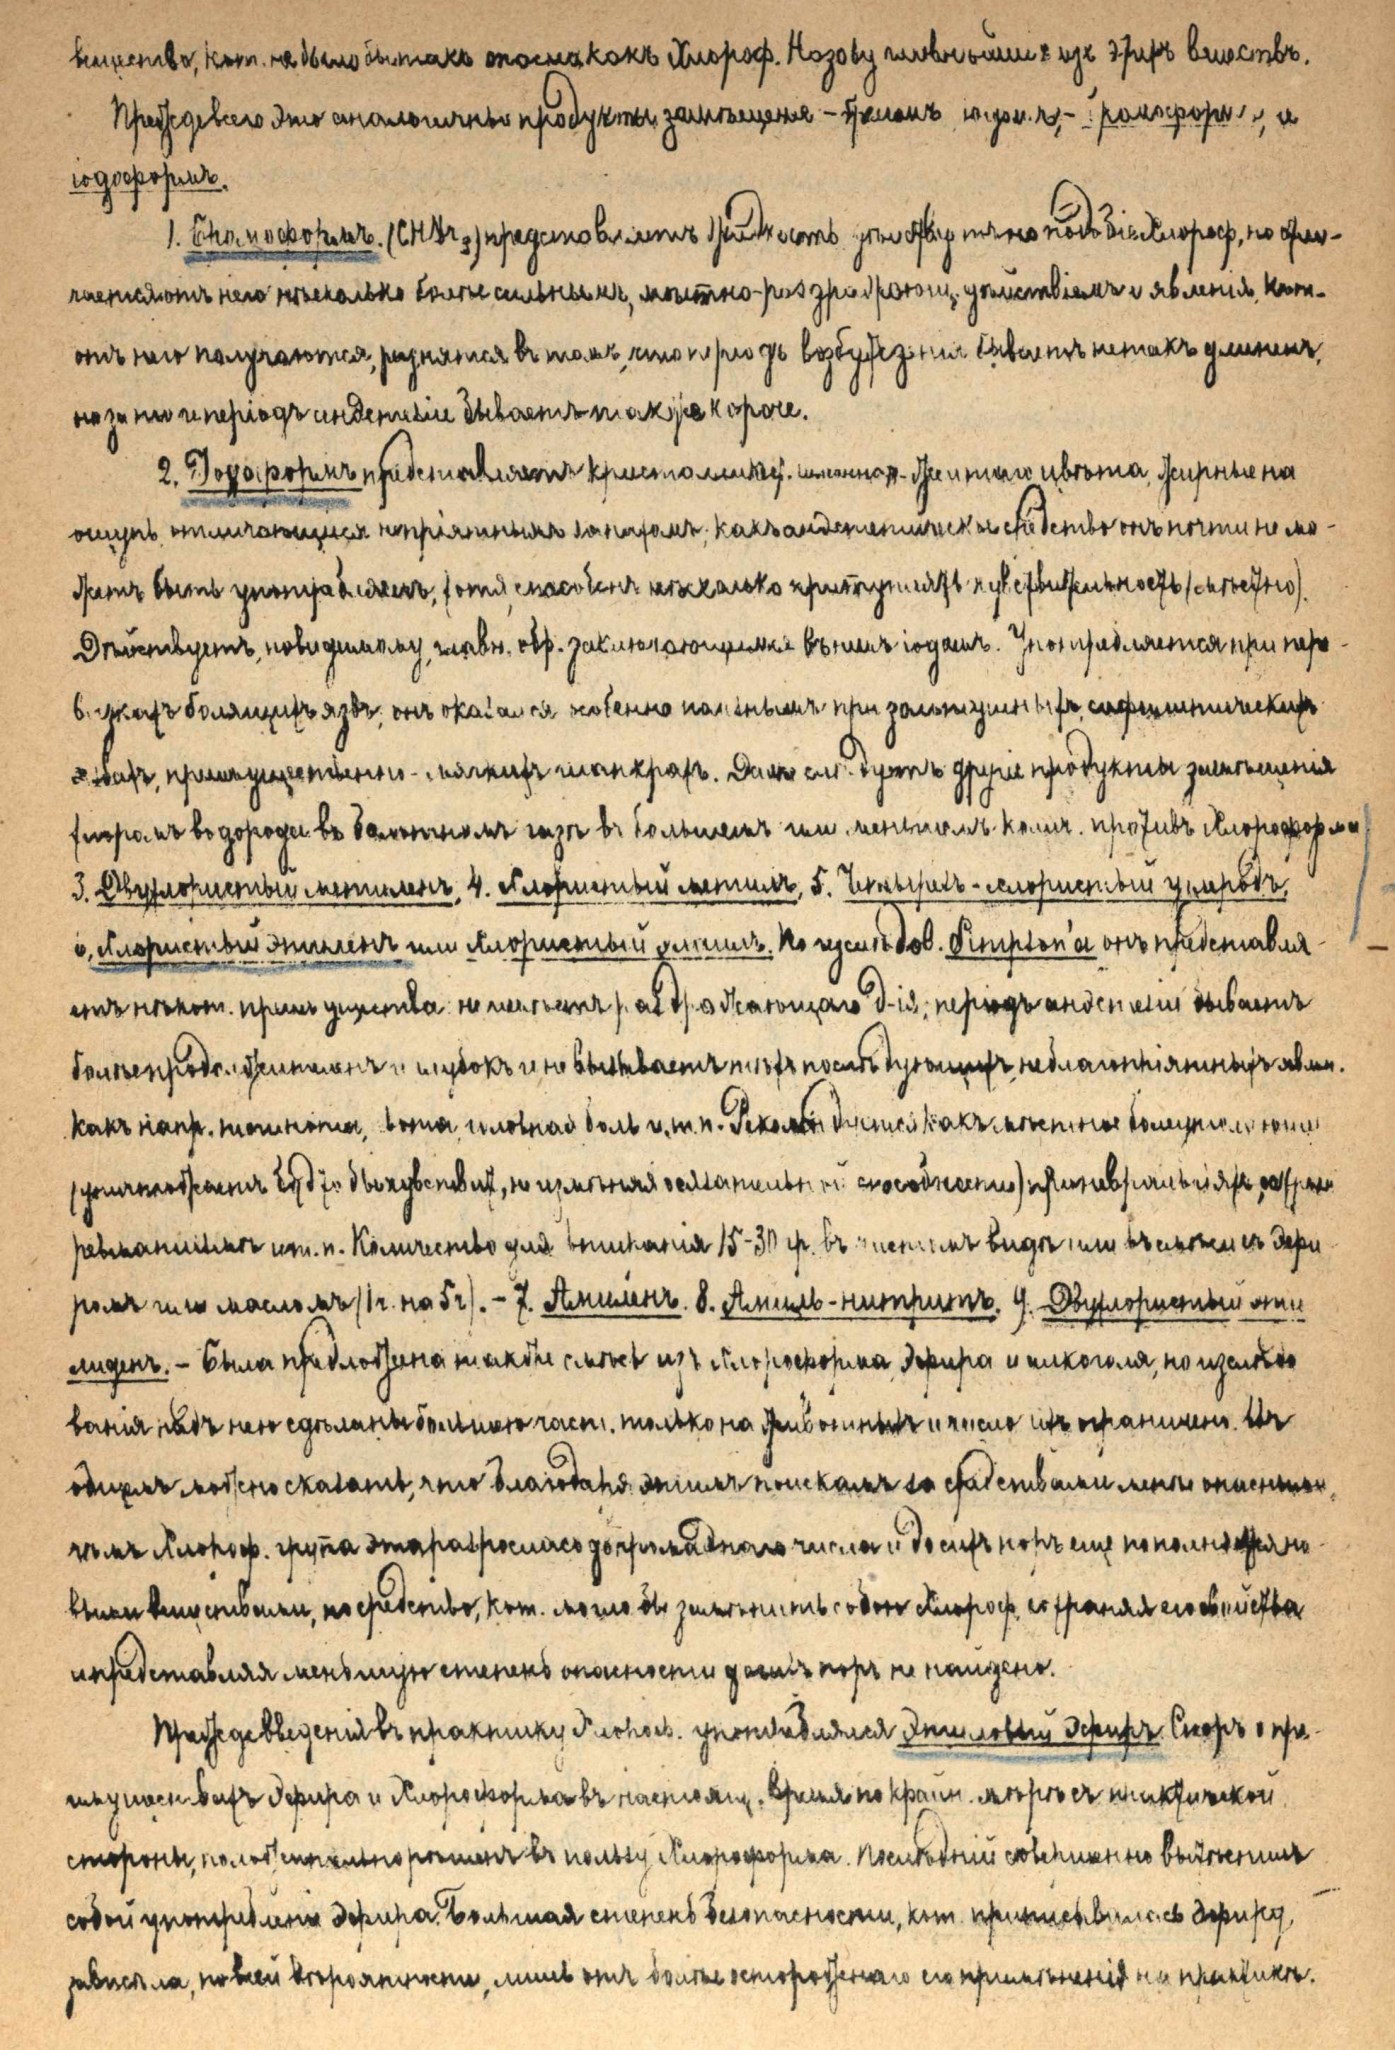 вещество, кот. не было бы такъ опасно какъ Хлороф. Назову главнѣйшiя изъ этихъ веществъ.
Прежде всего это аналогичные продукты замѣщенiя – бромомъ iодомъ, – бромоформъ, и
iодоформъ.
1. Бромоформъ. (CHBr3) представляетъ жидкость дѣйствуетъ на подобiе Хлороф., но отли-
чается отъ него нѣсколько болѣе сильнымъ, мѣстно-раздражающ. дѣйствiемъ и явленiя, кот.
отъ него получаются, разнятся въ томъ, что перiодъ возбужденiя бываетъ не такъ длиненъ,
но за то и перiодъ анэстезiи бываетъ также короче.
2. Iодоформъ представляетъ кристаллич. лимонно-желтаго цвѣта, жирные на
ощупь, отличающiися непрiятнымъ запахомъ; какъ анэстетическое средство онъ почти не мо-
жетъ быть употребляемъ, хотя способенъ нѣсколько притуплять чувствительность (мѣстно).
Дѣйствуетъ, повидимому, главн. обр. заключающимся въ немъ iодомъ. Употребляется при пере-
вязкахъ болящихъ язвъ; онъ оказался особенно полезнымъ при запущенныхъ, сифилитическихъ
язвахъ, преимущественно – мягкихъ шанкрахъ. Далѣе слѣдуютъ другiе продукты замѣщенiя
хлоромъ водорода въ болотномъ газѣ въ большемъ или меньшемъ колич. противъ Хлороформа
3. Двухлористый метиленъ, 4. Хлористый метилъ, 5. Четырехъ-хлористый углеродъ,
6. Хлористый этиленъ или Хлористый элаилъ. По изслѣдов. Simpson'а онъ представля-
етъ нѣкот. преимущества: не имѣетъ раздражающаго д-iя; перiодъ анэстезiи бываетъ
болѣе продолжителенъ и глубокъ и не вызываетъ тѣхъ послѣдующихъ неблагопрiятныхъ явл.
какъ напр. тошнота, рвота, головная боль и т. п. Рекомендуется какъ мѣстное болеутоляющее
(уничтожаетъ будто бы чувствит., не измѣняя осязательной способности) при невралгiяхъ, остромъ
ревматизмѣ и т. п. Количество для втиранiя 15-30 гр. въ чистомъ видѣ или въ смѣси съ эфи-
ромъ или масломъ (1 ч. на 5 ч). – 7. Амиленъ. 8. Амиль-нитритъ. 9. Двухлористый эти-
лиденъ. – Была предложена также смѣсь изъ Хлороформа, эфира и алкоголя, но изслѣдо-
ванiя надъ нею сдѣланы большею част. только на животныхъ и число ихъ ограничено. Въ
общемъ можно сказать, что благодаря этимъ поискамъ за средствами менѣе опасными,
чѣмъ Хлороф. группа эта разрослась до громаднаго числа и до сихъ поръ еще пополняется но-
выми веществами, но средство, кот. могло бы замѣнить собою Хлороф. сохраняя его свойства
и представляя меньшую степень опасности до сихъ поръ не найдено.
Прежде введенiя въ практику Хлороф. употреблялся Этиловый эфиръ. Споръ о пре-
имуществахъ Эфира и Хлороформа въ настоящ. время по крайн. мѣрѣ съ практической
стороны, положительно рѣшенъ въ пользу Хлороформа. Послѣднiй совершенно вытѣснилъ
собой употребленiе Эфира. Большая степень безопасности, кот. приписывалась Эфиру,
зависѣла, по всей вѣроятности, лишь отъ болѣе осторожнаго его примѣненiя на практикѣ.